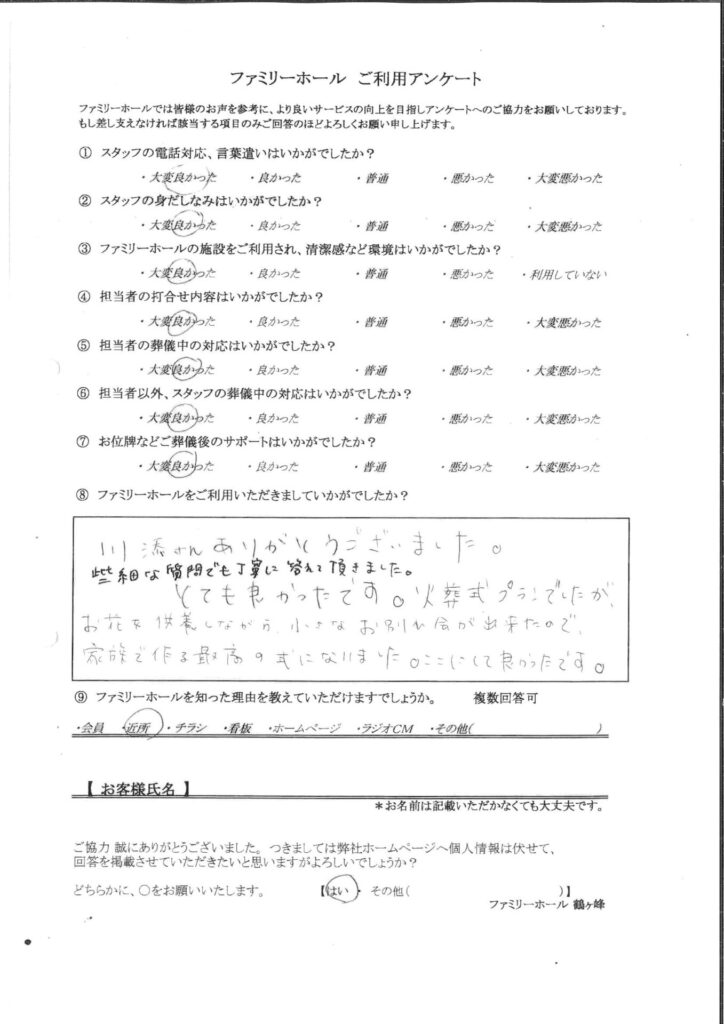 ファミリーホール ご利用アンケート
ファミリーホールでは皆様のお声を参考に、より良いサービスの向上を目指しアンケートへのご協力をお願いしております。
もし差し支えなければ該当する項目のみご回答のほどよろしくお願い申し上げます。
① スタッフの電話対応、言葉遣いはいかがでしたか？
・大変良かった ・良かった ・普通 ・悪かった ・大変悪かった
② スタッフの身だしなみはいかがでしたか？
・大変良かった ・良かった ・普通 ・悪かった ・大変悪かった
③ ファミリーホールの施設をご利用され、清潔感など環境はいかがでしたか？
・大変良かった ・良かった ・普通 ・悪かった ・利用していない
④ 担当者の打合せ内容はいかがでしたか？
・大変良かった ・良かった ・普通 ・悪かった ・大変悪かった
⑤ 担当者の葬儀中の対応はいかがでしたか？
・大変良かった ・良かった ・普通 ・悪かった ・大変悪かった
⑥ 担当者以外、スタッフの葬儀中の対応はいかがでしたか？
・大変良かった ・良かった ・普通 ・悪かった ・大変悪かった
⑦ お位牌などご葬儀後のサポートはいかがでしたか？
・大変良かった ・良かった ・普通 ・悪かった ・大変悪かった
⑧ ファミリーホールをご利用いただきましていかがでしたか？
川添さんありがとうございました。
些細な質問でも丁寧に答えて頂きました。
とても良かったです。火葬式プランでしたが、
お花を供養しながら、小さなお別れ会が出来たので、
家族で作る最高の式になりました。ここにして良かったです。
⑨ ファミリーホールを知った理由を教えていただけますでしょうか。 複数回答可
・会員 ・近所 ・チラシ ・看板 ・ホームページ ・ラジオCM ・その他( )
【 お客様氏名 】
＊お名前は記載いただかなくても大丈夫です。
ご協力 誠にありがとうございました。つきましては弊社ホームページへ個人情報は伏せて、
回答を掲載させていただきたいと思いますがよろしいでしょうか？
どちらかに、○をお願いいたします。 【はい ・ その他( )】
ファミリーホール 鶴ヶ峰